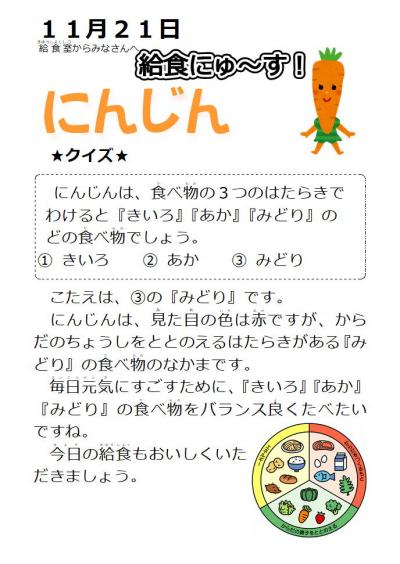 11月21日
給食室からみなさんへ
給食にゅ～す！
にんじん
★クイズ★
にんじんは、食べ物の３つのはたらきで
わけると『きいろ』『あか』『みどり』の
どの食べ物でしょう。
① きいろ ② あか ③ みどり
こたえは、③の『みどり』です。
にんじんは、見た目の色は赤ですが、から
だのちょうしをととのえるはたらきがある『み
どり』の食べ物のなかまです。
毎日元気にすごすために、『きいろ』『あか』
『みどり』の食べ物をバランス良くたべたい
ですね。
今日の給食もおいしくいた
だきましょう。
からだの調子をととのえる